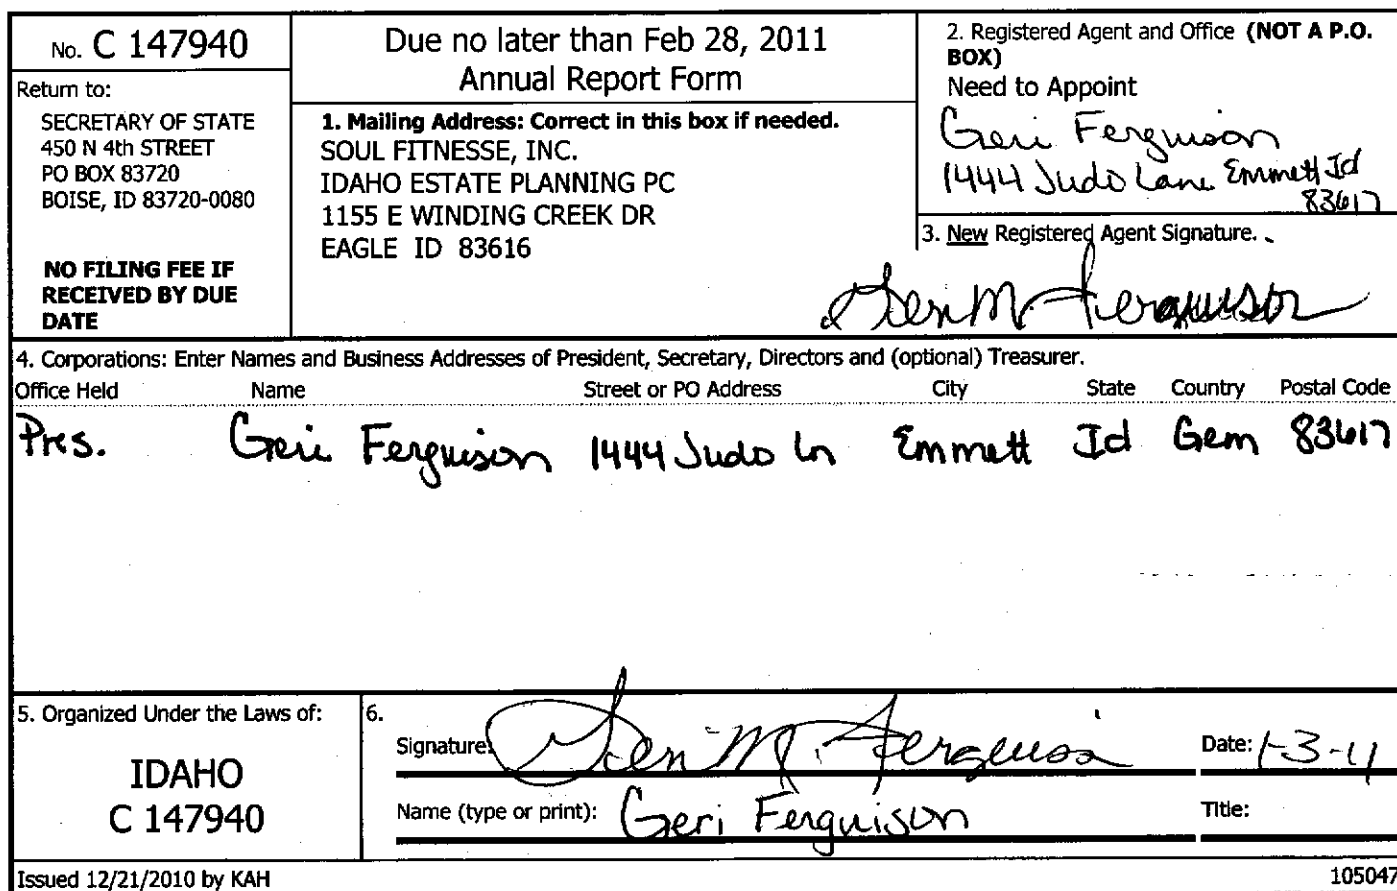 No. C 147940
Return to:
SECRETARY OF STATE
450 N 4th STREET
PO BOX 83720
BOISE, ID 83720-0080
NO FILING FEE IF
RECEIVED BY DUE
DATE
Due no later than Feb 28, 2011
Annual Report Form
1. Mailing Address: Correct in this box if needed.
SOUL FITNESSE, INC.
IDAHO ESTATE PLANNING PC
1155 E WINDING CREEK DR
EAGLE ID 83616
2. Registered Agent and Office (NOT A P.O.
BOX)
Need to Appoint
Geri Ferguison
1444 Judo Lane Emmett Id
83617
3. New Registered Agent Signature.
Geri M. Ferguison
4. Corporations: Enter Names and Business Addresses of President, Secretary, Directors and (optional) Treasurer.
Office Held Name Street or PO Address City State Country Postal Code
Pres. Geri Ferguison 1444 Judo Ln Emmett Id Gem 83617
5. Organized Under the Laws of:
IDAHO
C 147940
6.
Signature: Geri M. Ferguison Date: 1-3-11
Name (type or print): Geri Ferguison Title:
Issued 12/21/2010 by KAH 105047